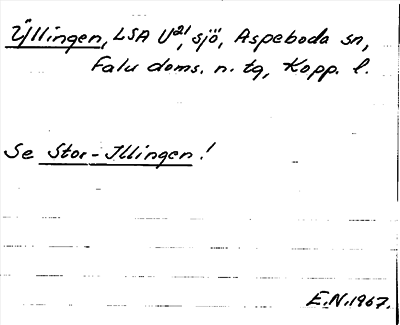 Yllingen, LSA U²¹, sjö, Aspeboda sn,
Falu doms. n. tg, Kopp. l.
Se Stor-Illingen!
E.N. 1967.